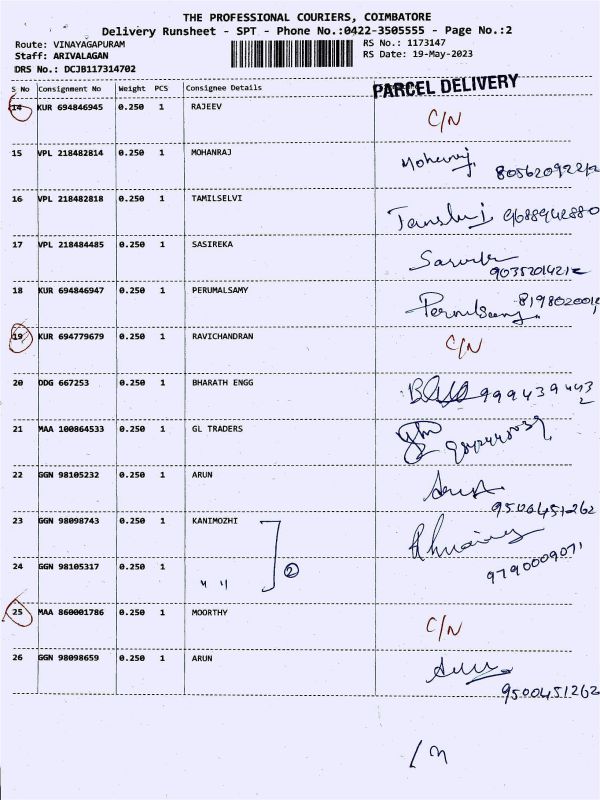 THE PROFESSIONAL COURIERS, COIMBATORE
Delivery Runsheet - SPT - Phone No.:0422-3505555 - Page No.:2
Route: VINAYAGAPURAM
Staff: ARIVALAGAN
DRS No.: DCJB117314702
RS No.: 1173147
RS Date: 19-May-2023
S No Consignment No Weight PCS Consignee Details PARCEL DELIVERY
14 KUR 694846945 0.250 1 RAJEEV C/N
15 VPL 218482814 0.250 1 MOHANRAJ Mohanraj
16 VPL 218482818 0.250 1 TAMILSELVI 9688942880
17 VPL 218484485 0.250 1 SASIREKA
9035201421
18 KUR 694846947 0.250 1 PERUMALSAMY
19 KUR 694779679 0.250 1 RAVICHANDRAN C/N
20 DDG 667253 0.250 1 BHARATH ENGG 9994394432
21 MAA 100864533 0.250 1 GL TRADERS
22 GGN 98105232 0.250 1 ARUN Arun
9500451262
23 GGN 98098743 0.250 1 KANIMOZHI
24 GGN 98105317 0.250 1 " " 2 9790009071
25 MAA 860001786 0.250 1 MOORTHY C/N
26 GGN 98098659 0.250 1 ARUN Arun
9500451262